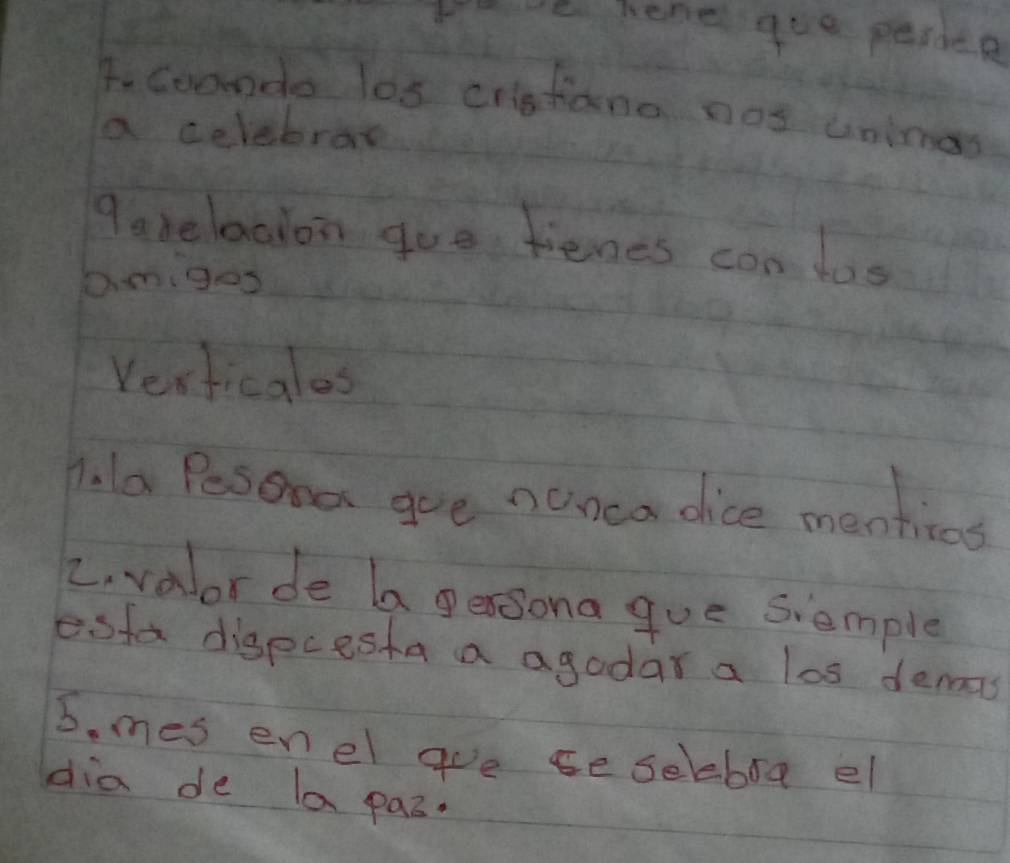 tiene que perder
7. Cuando los cristiano nos unimos
a celebrar
9. relacion que tienes con tus
amigos
Verticales
1. la Pesona que nunca dice mentiras
2. valor de la persona que siemple
esta dispcesta a agodar a los demas
5. mes en el que se selebra el
dia de la paz.